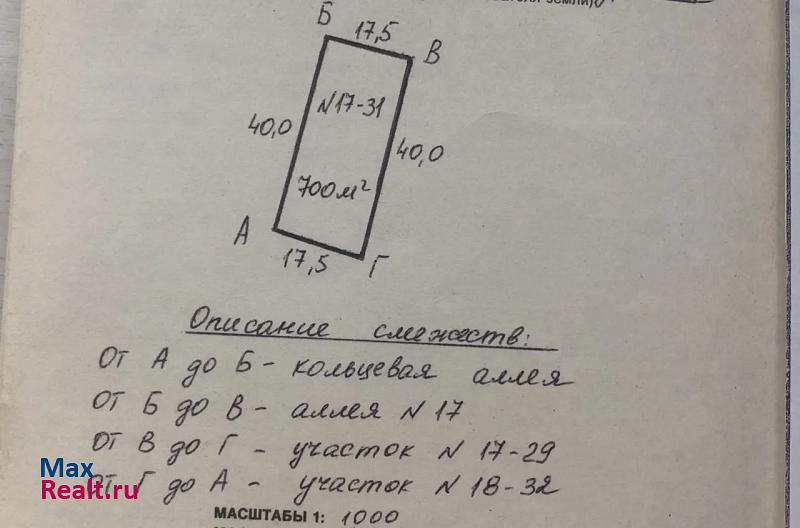 ЗЕМЛИ)
Б
17,5
В
N17-31
40,0
40,0
700м²
А
17,5
Г
Описание смежеств:
От А до Б - кольцевая аллея
От Б до В - аллея N 17
От В до Г - участок N 17-29
От Г до А - участок N 18-32
Max
Realt.ru
МАСШТАБЫ 1: 1000